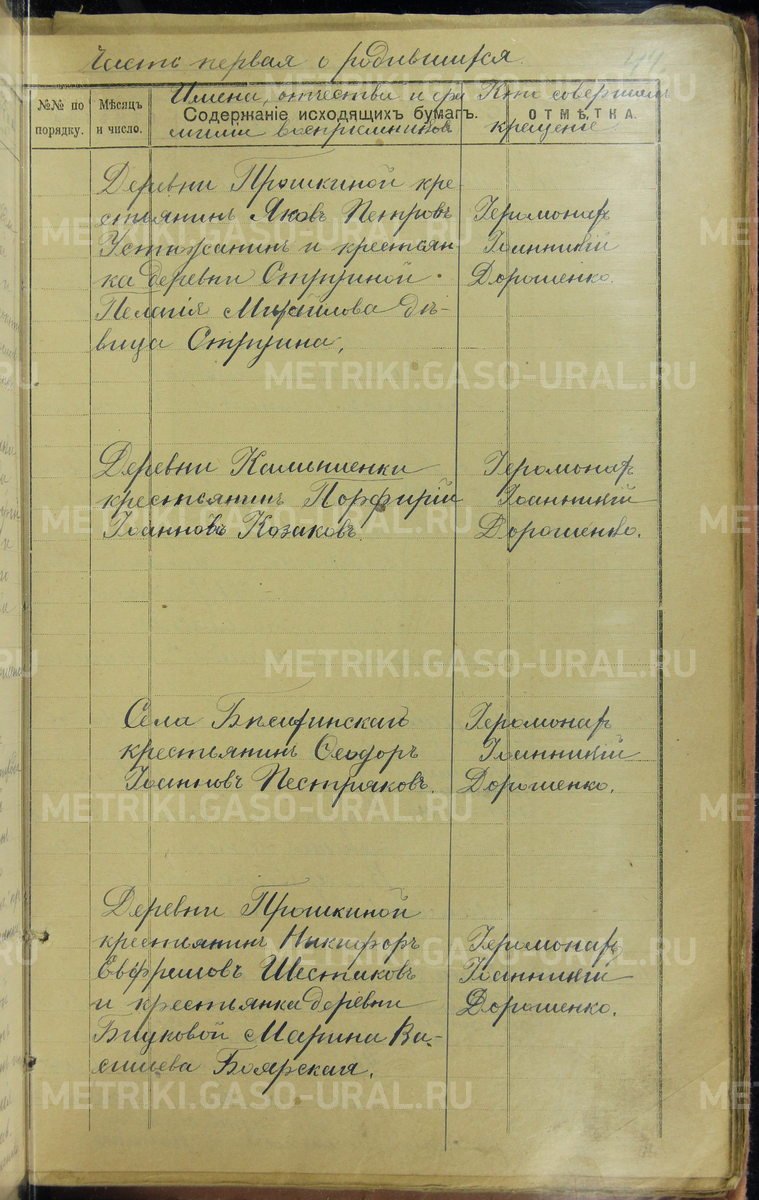 Часть первая о родившихся.
44
№№ по порядку.
Мѣсяцъ и число.
Содержаніе исходящихъ бумагъ.
ОТМѢТКА.
Имена, отчества и фа
миліи воспріемниковъ
Кто совершалъ
крещеніе
Деревни Прошкиной кре-
стьянинъ Яковъ Петровъ
Устюжанинъ и крестьян-
ка деревни
Пелагія Михайлова дѣ-
вица
Іеромонах
Іоанникій
Дорошенко.
Деревни
крестьянинъ Порфирій
Іоанновъ Козаковъ.
Іеромонах
Іоанникій
Дорошенко.
Села
крестьянинъ Ѳеодоръ
Іоанновъ Пестряковъ.
Іеромонах
Іоанникій
Дорошенко.
Деревни Прошкиной
крестьянинъ Никифоръ
Евфремовъ Шестаковъ
и крестьянка деревни
Марина Ва-
сильева Боярская.
Іеромонах
Іоанникій
Дорошенко.
METRIKI.GASO-URAL.RU